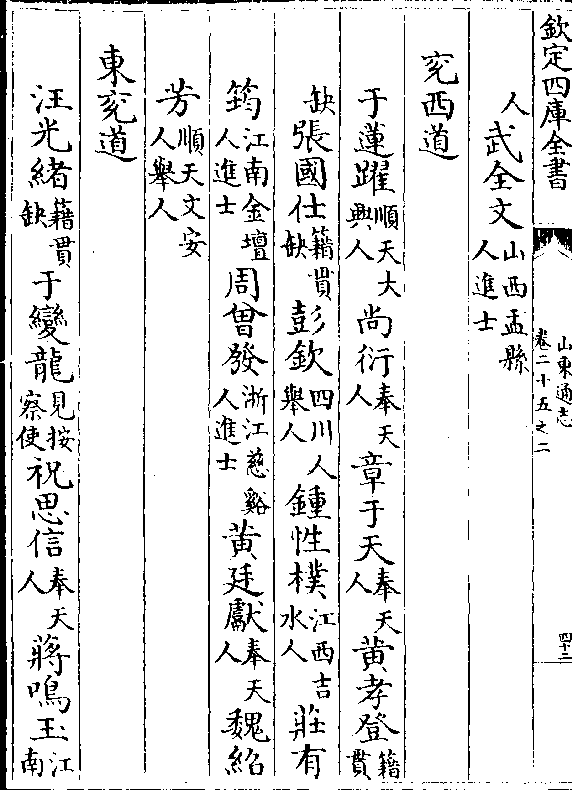 欽定四庫全書
山東通志
卷二十五之二
四十二
人武全文山西盂縣人進士
兖西道
于蓮躍順天大興人尚衍奉天人章于天奉天人黄孝登籍貫
缺張國仕籍貫缺彭欽四川人舉人鍾性樸江西吉水人莊有
筠江南金壇人進士周曾發浙江慈谿人進士黄廷獻奉天人魏紹
芳順天文安人舉人
東兖道
汪光緒籍貫缺于變龍見按察使祝思信奉天人蔣鳴玉江南